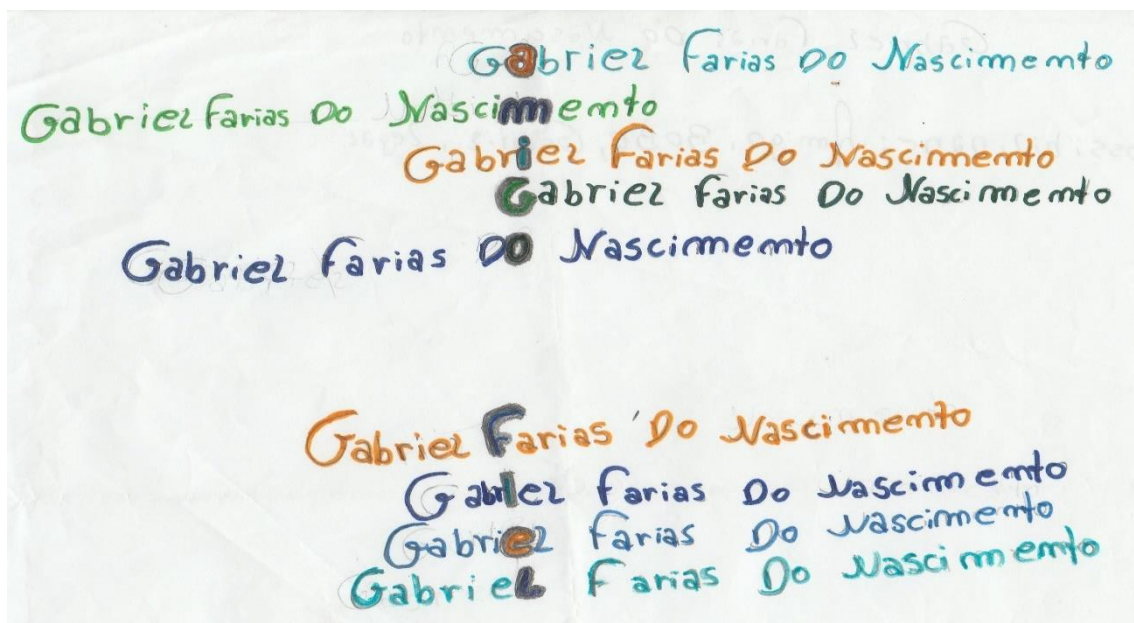 Gabriel Farias Do Nascimemto
Gabriel Farias Do Nascimemto
Gabriel Farias Do Nascimemto
Gabriel Farias Do Nascimemto
Gabriel Farias Do Nascimemto
Gabriel Farias Do Nascimemto
Gabriel Farias Do Nascimemto
Gabriel Farias Do Nascimemto
Gabriel Farias Do Nascimemto